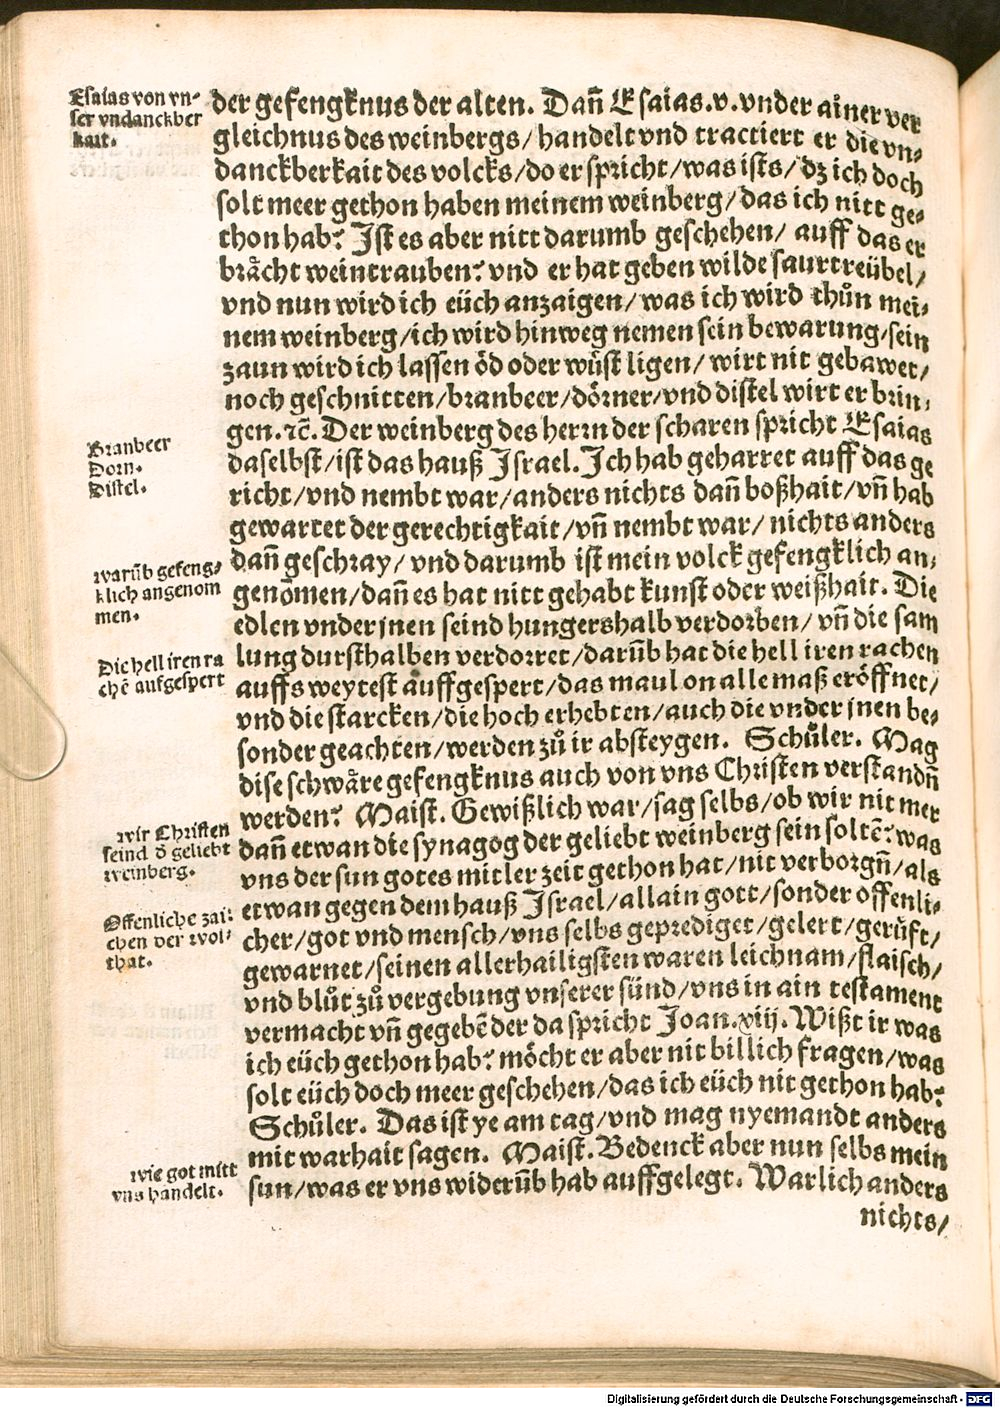 Esaias von vn-
ser vndanckber
kait.
der gefengknus der alten. Dañ Esaias.v.vnder ainer ver
gleichnus des weinbergs/handelt vnd tractiert er die vn-
danckberkait des volcks/do er spricht/was ists/dz ich doch
solt meer gethon haben meinem weinberg/das ich nitt ge-
thon hab? Ist es aber nitt darumb geschehen/ auff das er
brächt weintrauben? vnd er hat geben wilde saurtreübel/
vnd nun wird ich eüch anzaigen/was ich wird thůn mei-
nem weinberg/ich wird hinweg nemen sein bewarung/sein
zaun wird ich lassen öd oder wůst ligen/ wirt nit gebawet/
noch geschnitten/branbeer/dörner/vnd distel wirt er brin-
gen.ꝛc̄. Der weinberg des herrn der scharen spricht Esaias
Branbeer
Dorn.
Distel.
daselbst/ist das hauß Israel. Ich hab geharret auff das ge
richt/vnd nembt war/anders nichts dañ boßhait/vñ hab
gewartet der gerechtigkait/vñ nembt war/ nichts anders
dañ geschray/ vnd darumb ist mein volck gefengklich an-
warūb gefeng-
klich angenom
men.
genōmen/dañ es hat nitt gehabt kunst oder weißhait. Die
edlen vnder jnen seind hungershalb verdorben/ vñ die sam
lung dursthalben verdorret/darūb hat die hell iren rachen
Die hell iren ra
chē aufgespert
auffs weytest auffgespert/das maul on alle maß eröffnet/
vnd die starcken/die hoch erhebten/auch die vnder jnen be-
sonder geachten/werden zů ir absteygen. Schůler. Mag
dise schwäre gefengknus auch von vns Christen verstandñ
werden? Maist. Gewißlich war/sag selbs/ob wir nit mer
wir Christen
seind ď geliebt
weinberg.
dañ etwan die synagog der geliebt weinberg sein soltē? was
vns der sun gotes mitler zeit gethon hat/nit verborgñ/als
etwan gegen dem hauß Israel/allain gott/sonder offenli-
Offenliche zai-
chen der wol-
that.
cher/got vnd mensch/vns selbs geprediget/gelert/gerůft/
gewarnet/seinen allerhailigsten waren leichnam/flaisch/
vnd blůt zů vergebung vnserer sünd/vns in ain testament
vermacht vñ gegebē der da spricht Joan.xiij. Wißt ir was
ich eüch gethon hab? möcht er aber nit billich fragen/was
solt eüch doch meer geschehen/das ich eüch nit gethon hab?
Schůler. Das ist ye am tag/vnd mag nyemandt anders
mit warhait sagen. Maist. Bedenck aber nun selbs mein
wie got mitt
vns handelt.
sun/was er vns widerūb hab auffgelegt. Warlich anders
nichts/
Digitalisierung gefördert durch die Deutsche Forschungsgemeinschaft - DFG